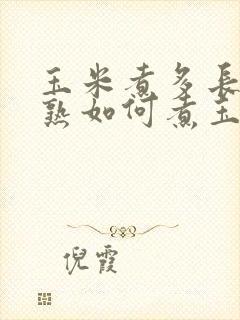 玉米煮多長
熟如何煮玉
倪霞